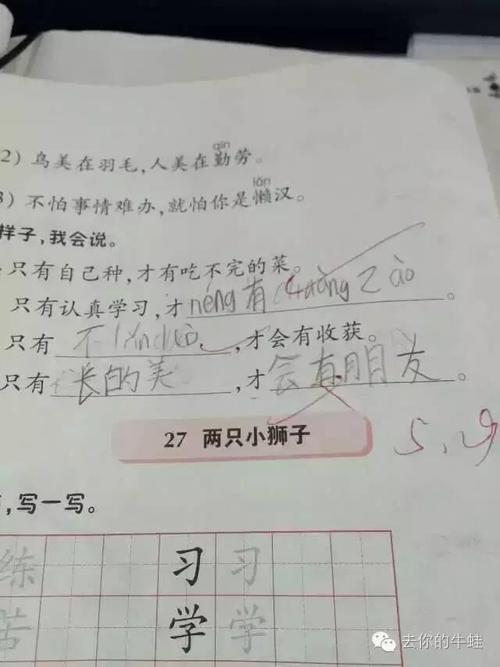 qín
2) 鸟美在羽毛,人美在勤劳。
lǎn
3) 不怕事情难办,就怕你是懒汉。
样子,我会说。
只有自己种,才有吃不完的菜。
只有认真学习,才néng有chuàngzào。
只有不,才会有收获。
只有长的美,才会有朋友。
27 两只小狮子
5.29
,写一写。
练 习 习
苦 学 学
去你的牛蛙